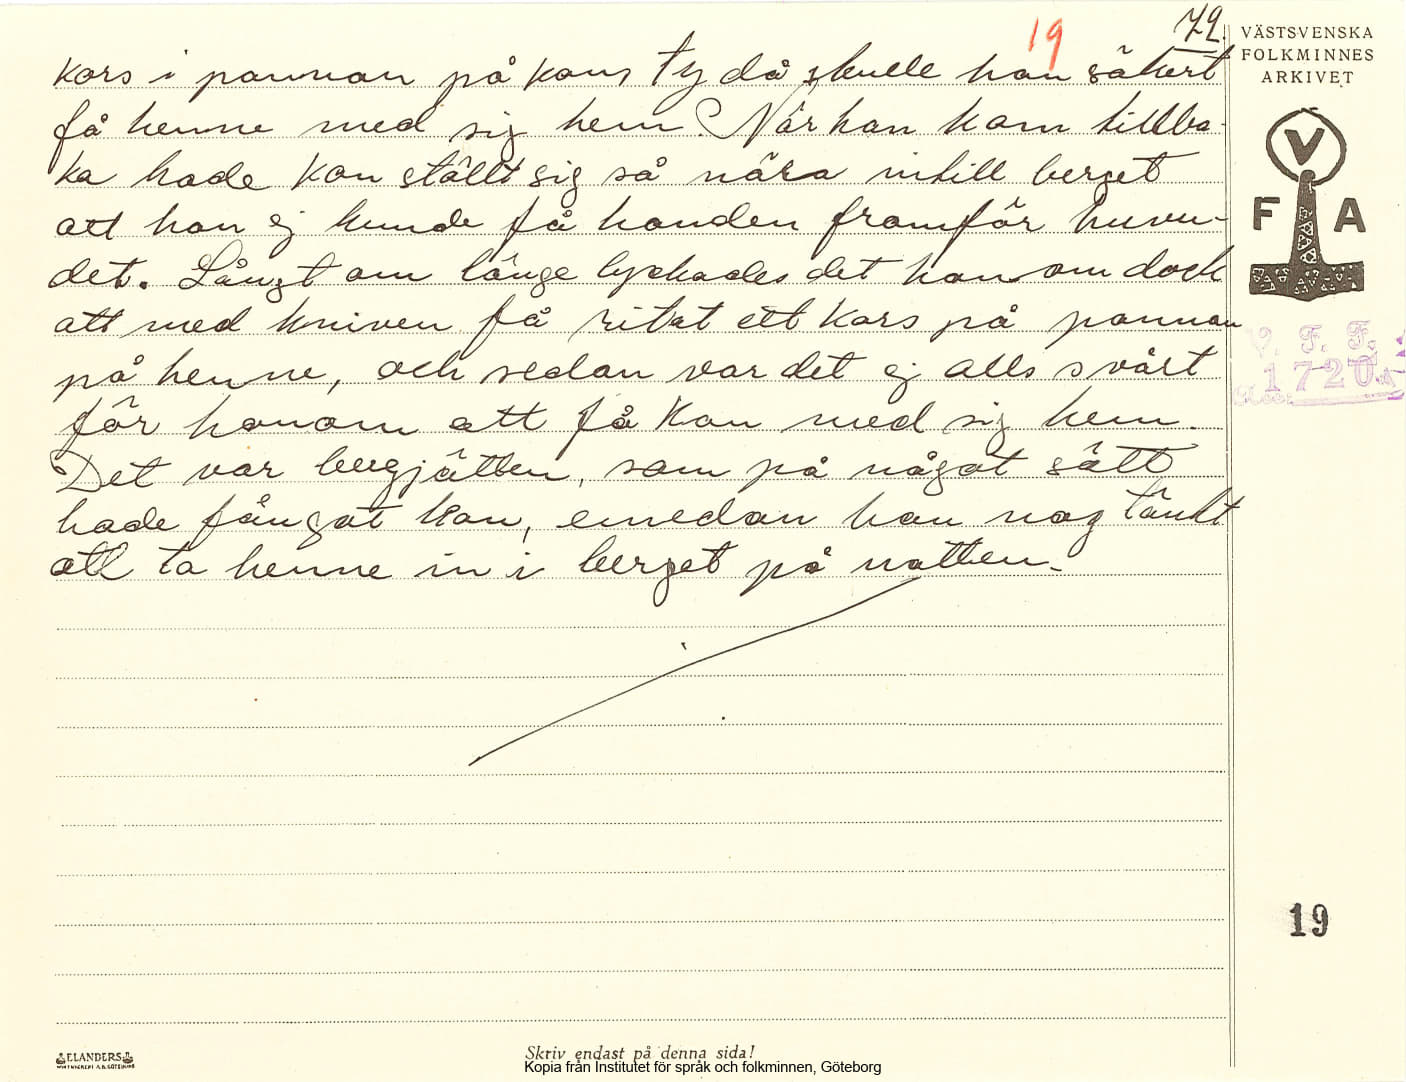 72.
19
VÄSTSVENSKA
FOLKMINNES
ARKIVET
V
F A
kors i pannan på kons ty då skulle han säkert
få henne med sig hem. När han kom tillba-
ka hade kon ställt sig så nära intill berget
att han ej kunde få handen framför huvu-
det. Långt om länge lyckades det honom dock
att med kniven få ritat ett kors på pannan
på henne, och sedan var det ej alls svårt
för honom att få kon med sig hem.
Det var bergjätten, som på något sätt
hade fångat kon, emedan han nog tänkt
att ta henne in i berget på natten.
V. F. F.
1720
19
ELANDERS
Skriv endast på denna sida!
Kopia från Institutet för språk och folkminnen, Göteborg